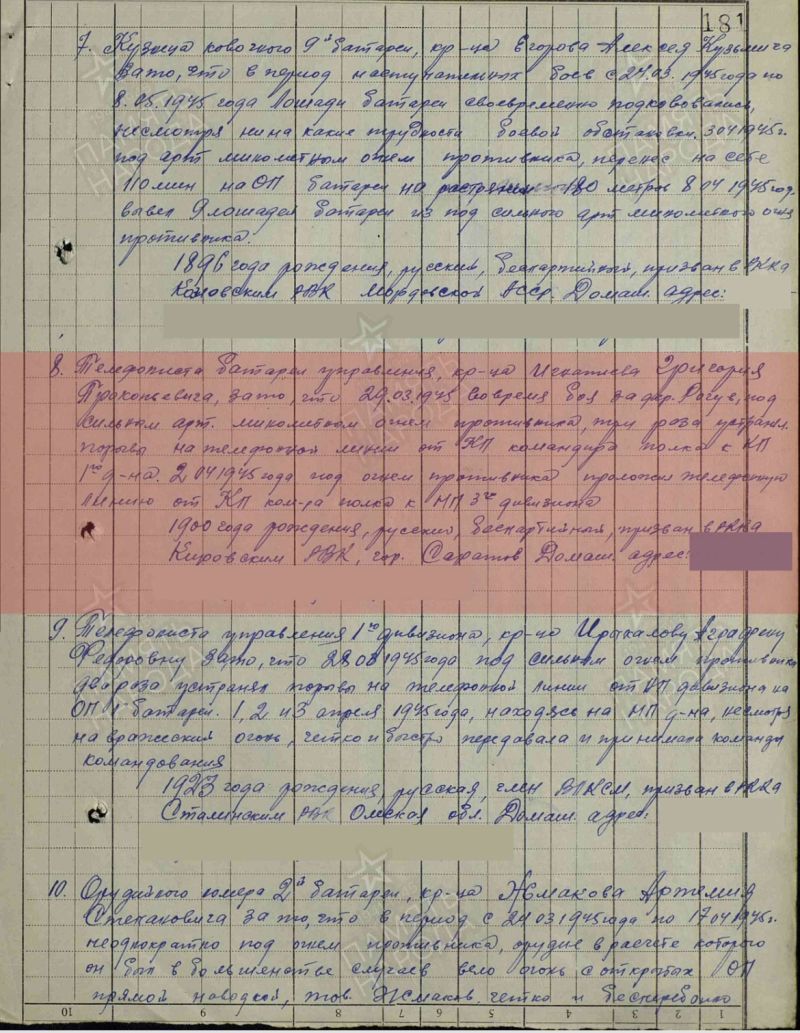 181
7. Кузнеца ковочного 9й батареи, кр-ца Егорова Алексея Кузьмича
за то, что в период наступательных боев с 24.03.1945 года по
8.05.1945 года лошади батареи своевременно подковывались,
несмотря ни на какие трудности боевой обстановки. 3 04 1945 г.
под арт. минометным огнем противника, перенес на себе
110 мин на ОП батареи на 180 метров 8 04 1945 год.
вывел 9 лошадей батареи из под сильного арт. минометного огня
противника.
1896 года рождения, русский, беспартийный, призван в РККА
РВК Мордовской АССР. Домаш. адрес:
8. Телефониста батареи управления, кр-ца Игнатьева Григория
Прокопьевича, за то, что 29.03.1945 во время боя за дер. Рогув, под
сильным арт. минометным огнем противника, три раза устранял
порывы на телефонной линии от КП командира полка к КП
1го д-на. 2 04 1945 года под огнем противника проложил телефонную
линию от КП ком-ра полка к НП 3го дивизиона
1900 года рождения, русский, беспартийный, призван в РККА
Кировским РВК, гор. Саратов Домаш. адрес:
9. Телефониста управления 1го дивизиона, кр-цо Аграфену
Федоровну за то, что 28 03 1945 года под сильным огнем противника
два раза устраняла порывы на телефонной линии от КП дивизиона на
ОП 1й батареи. 1, 2 и 3 апреля 1945 года, находясь на НП д-на, несмотря
на вражеский огонь, четко и быстро передавала и принимала команды
командования
1923 года рождения, русская, член ВЛКСМ, призван в РККА
Сталинским РВК Омская обл. Домаш. адрес:
10. Орудийного номера 2й батареи, кр-ца Жмакова Артемия
Степановича за то, что в период с 24 03 1945 года по 17 04 1945 г.
неоднократно под огнем противника, орудие в расчете которого
он был в большинстве случаев вело огонь с открытых ОП
прямой наводкой, тов. Жмаков четко и бесперебойно
10 9 8 7 6 5 4 3 2 1
ПАМЯТЬ НАРОДА